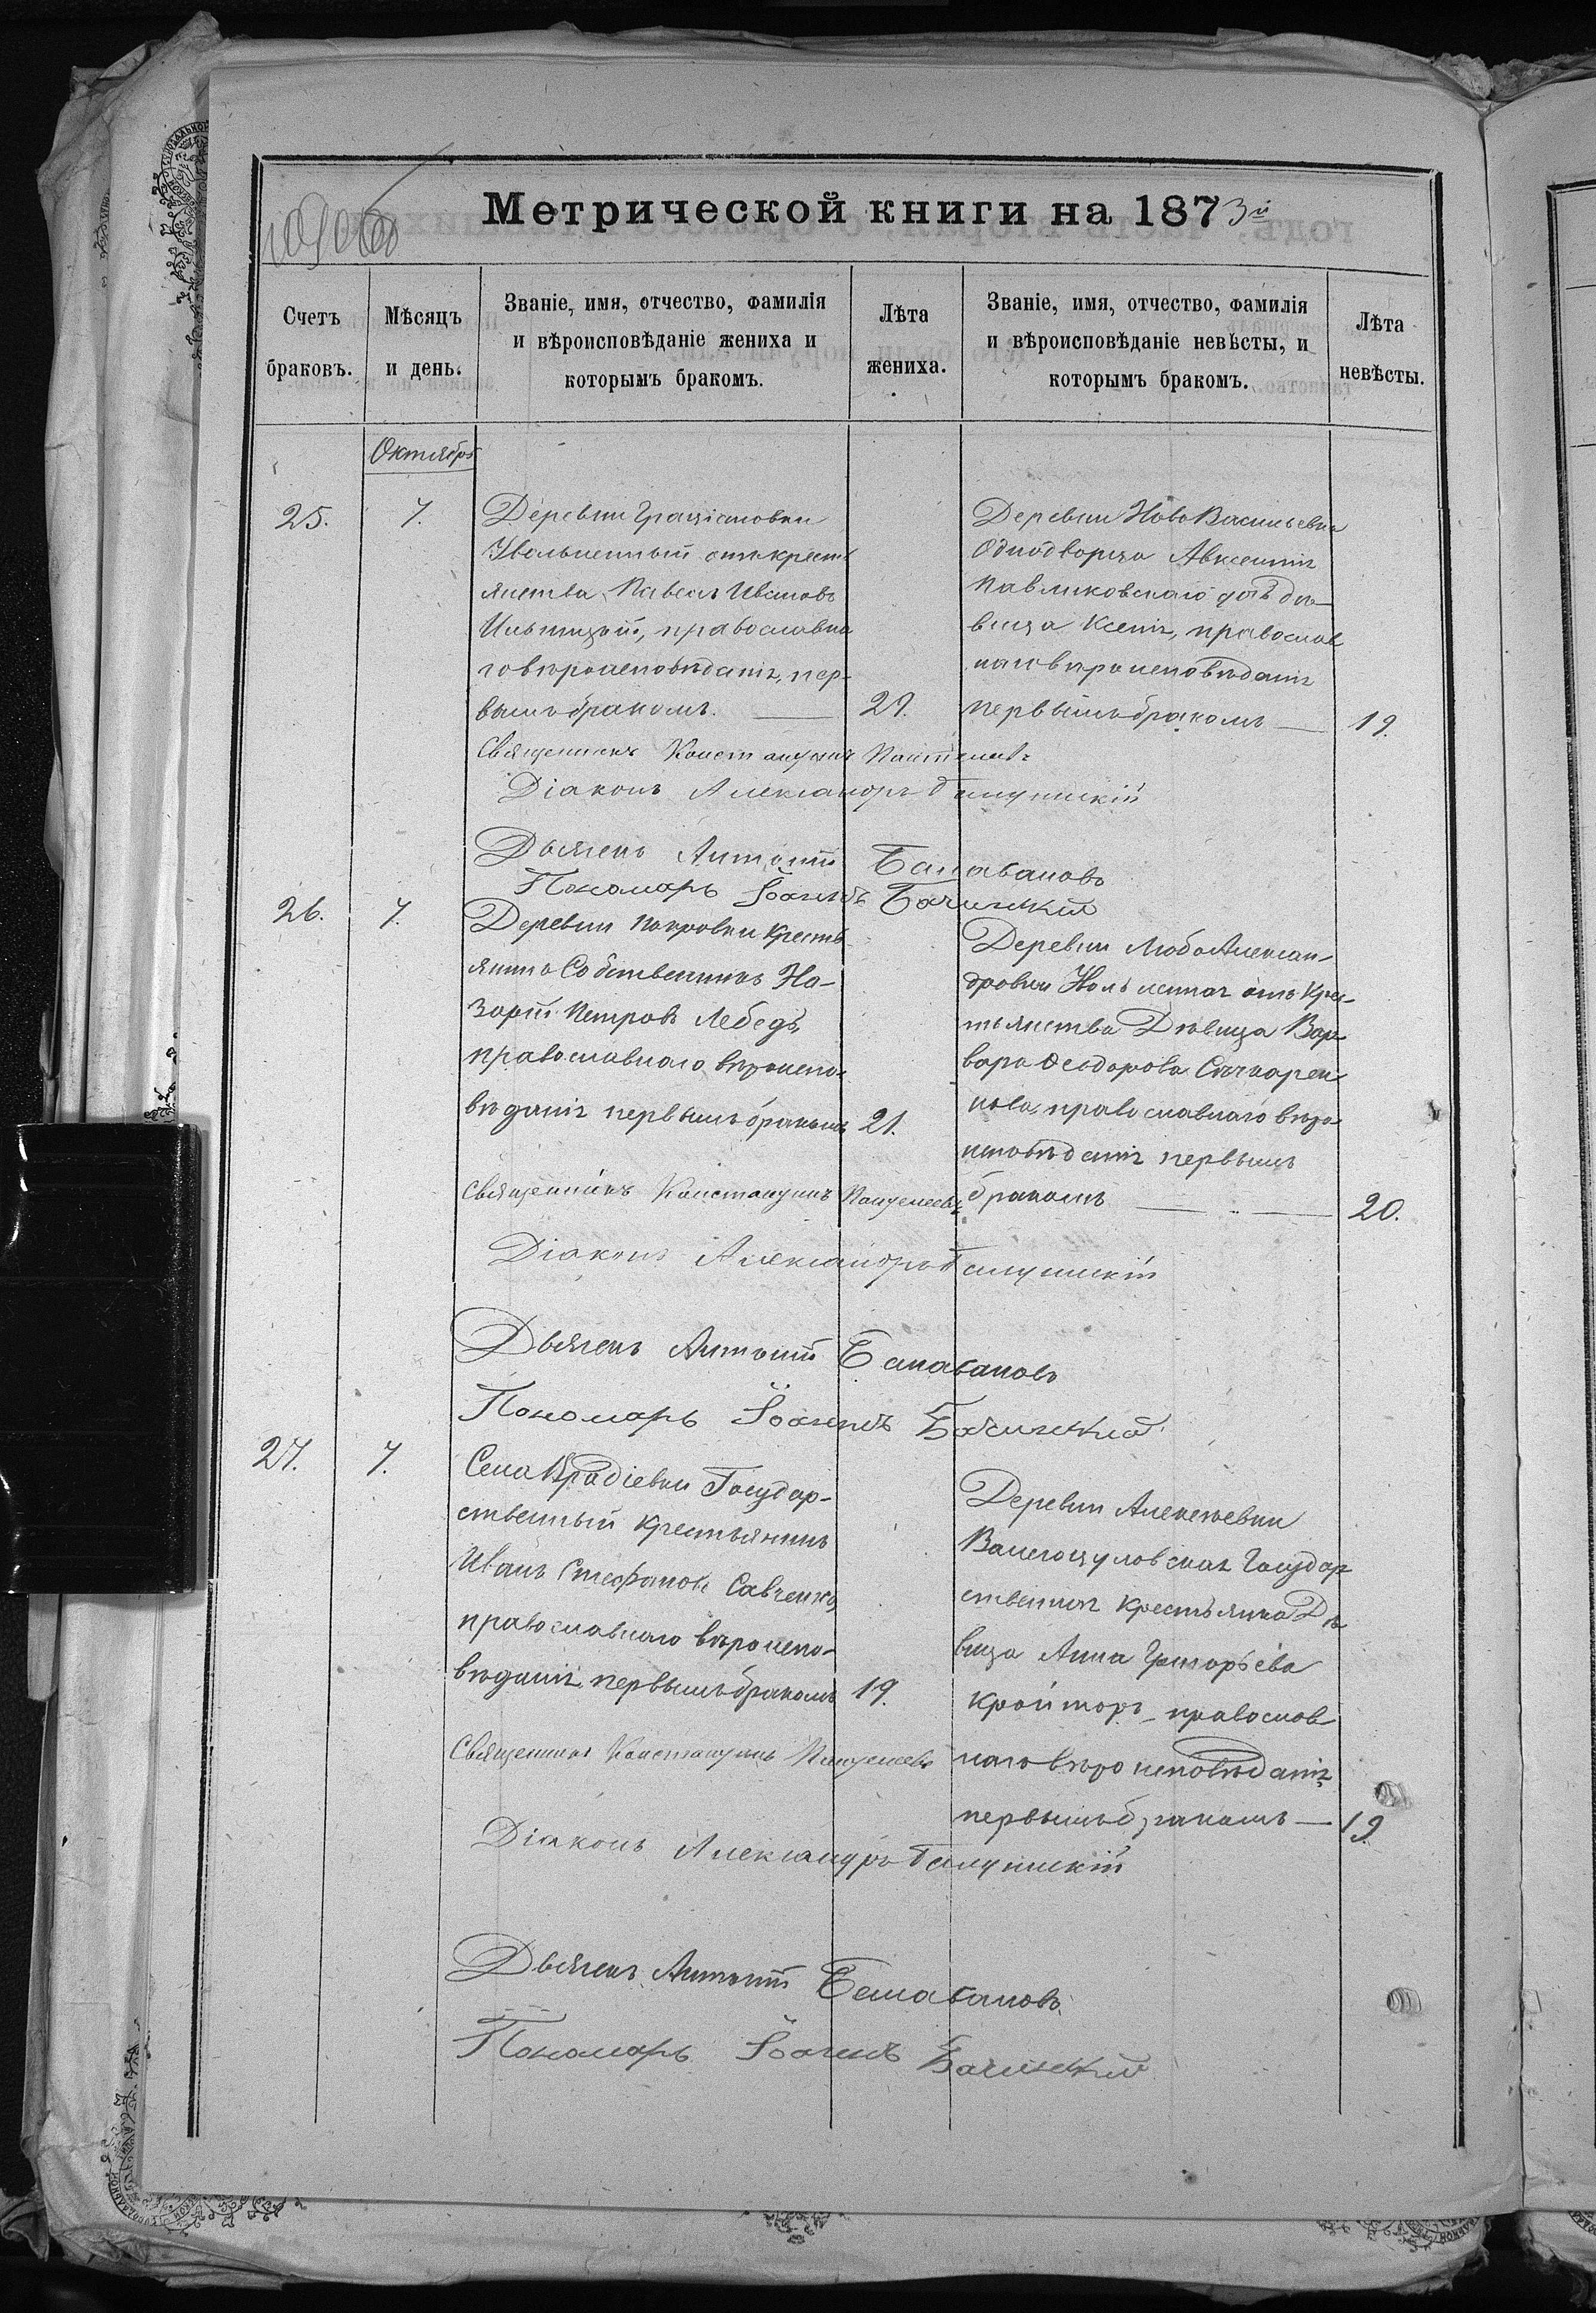 Метрической книги на 1873й
Счетъ браковъ.
Мѣсяцъ и день.
Званіе, имя, отчество, фамилія
и вѣроисповѣданіе жениха и
которымъ бракомъ.
Лѣта жениха.
Званіе, имя, отчество, фамилія
и вѣроисповѣданіе невѣсты, и
которымъ бракомъ.
Лѣта невѣсты.
Октябрь
25.
7.
Деревни Граціановки
Увольненный отъ кресть
янства Павелъ Ивановъ
православна
го вѣроисповѣданія, пер-
вымъ бракомъ.
Деревни НовоВасильевки
Однодворца Авксентія
Павликовскаго дочь дѣ-
вица Ксенія, православ
наго вѣроисповѣданія
первымъ бракомъ
19.
Священникъ Константинъ Пантелеевъ
Діаконъ Александръ
Дьячекъ Антоній Балабановъ
Пономарь Іоаннъ Бачинскій
26.
7.
Деревни Покровки кресть
янинъ Собственникъ На-
зарій Петровъ Лебедь,
православнаго вѣроиспо-
вѣданія первымъ бракомъ
21.
Деревни ЛюбоАлексан-
дровки отъ крес-
тьянства Дѣвица Вар-
вара Феодорова
православнаго вѣро-
исповѣданія первымъ
бракомъ
20.
Священникъ Константинъ Пантелеевъ
Діаконъ Александръ
Дьячекъ Антоній Балабановъ
Пономарь Іоаннъ Бачинскій
27.
7.
Села Государ-
ственный крестьянинъ
Иванъ Стефановъ Савченко,
православнаго вѣроиспо-
вѣданія, первымъ бракомъ
19.
Деревни Алексѣевки
Государ
ственная крестьянка Дѣ
вица Анна Григорьева
Кройторъ православ
наго вѣроисповѣданія
первымъ бракомъ
19.
Священникъ Константинъ Пантелеевъ
Діаконъ Александръ
Дьячекъ Антоній Балабановъ
Пономарь Іоаннъ Бачинскій